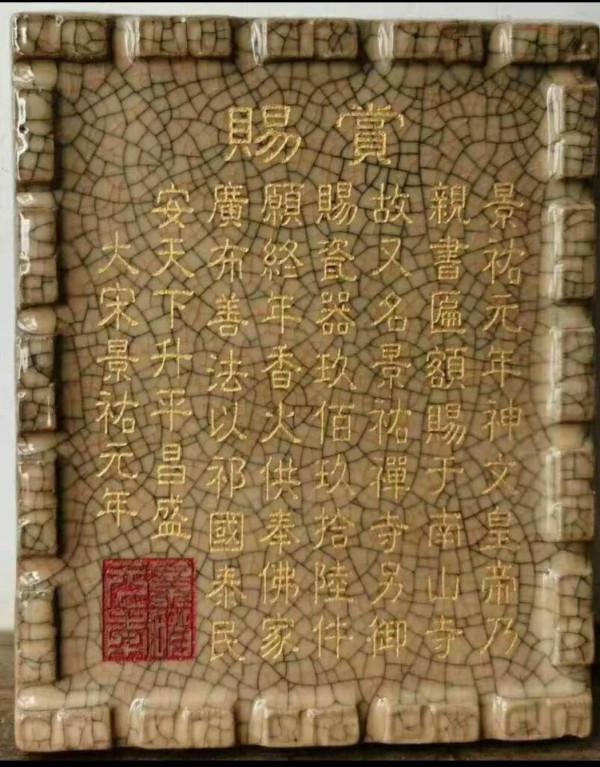 賞賜
景祐元年神文皇帝乃
親書匾額賜于南山寺
故又名景祐禪寺另御
賜瓷器玖佰玖拾陸件
願終年香火供奉佛家
廣布善法以祁國泰民
安天下升平昌盛
大宋景祐元年
景祐
元年